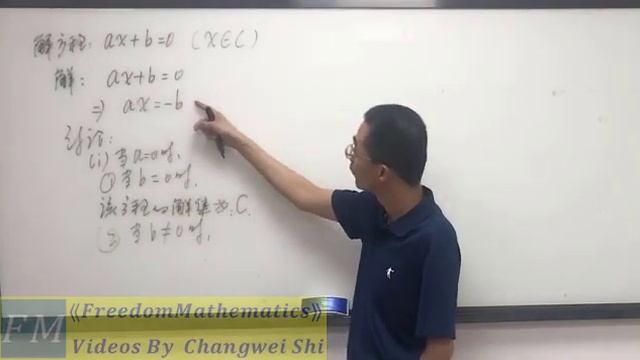 解方程: ax+b=0 (x∈C)
解: ax+b=0
⇒ ax=-b
讨论:
(i) 当a=0时,
① 当b=0时,
该方程的解集为:C.
② 当b≠0时,
FM
《FreedomMathematics》
Videos By Changwei Shi